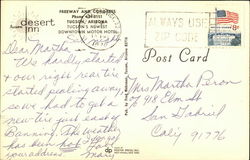 desert inn
FREEWAY AND CONGRESS
TUCSON, ARIZONA
TUCSON'S NEWEST
DOWNTOWN MOTOR HOTEL
ALWAYS USE
ZIP CODE
8¢
Post Card
Dear Martha
We hardly started
& our right rear tire
started peeling away
so we had to get a
new tire just east of
Banning. The weather
has been hot
Mrs Martha Peron
918 Elm St
San Gabriel
Calif 91776